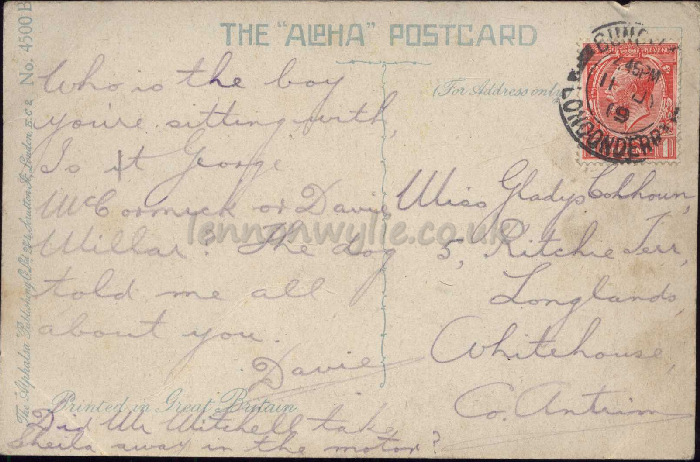 THE "ALPHA" POSTCARD
No. 4500 B
The Alphalsa Publishing Co. Ltd., London E.C.2
(For Address only)
45PM
11 JU
19
LONDONDERRY
Who is the boy
you're sitting with,
Is it George
McCormick or Davie
Millar? The dog
told me all
about you.
Davie
Miss Gladys Colhoun,
5, Ritchie Terr,
Longlands,
Whitehouse,
Co. Antrim
lennonwylie.co.uk
Printed in Great Britain
Did Mr Mitchell take
Sheila away in the motor?